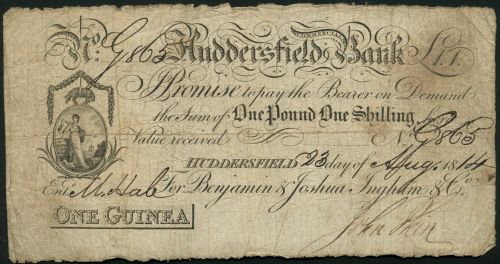 No. G865 Huddersfield COMMERCIAL Bank £1.1.
I Promise to pay the Bearer on Demand
the Sum of One Pound One Shilling
Value received No. G865
HUDDERSFIELD 23 day of Aug. 1814
Entd. For Benjamin & Joshua Ingham & Co.
ONE GUINEA